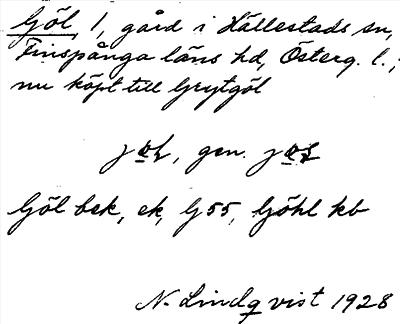 Göl, 1, gård i Hällestads sn,
Finspånga läns hd, Österg. l.;
nu köpt till Grytgöl
gen.
Göl bek, ek, G 55, Göhl kb
N. Lindqvist 1928